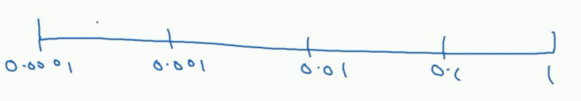 0.0001 0.001 0.01 0.1 1